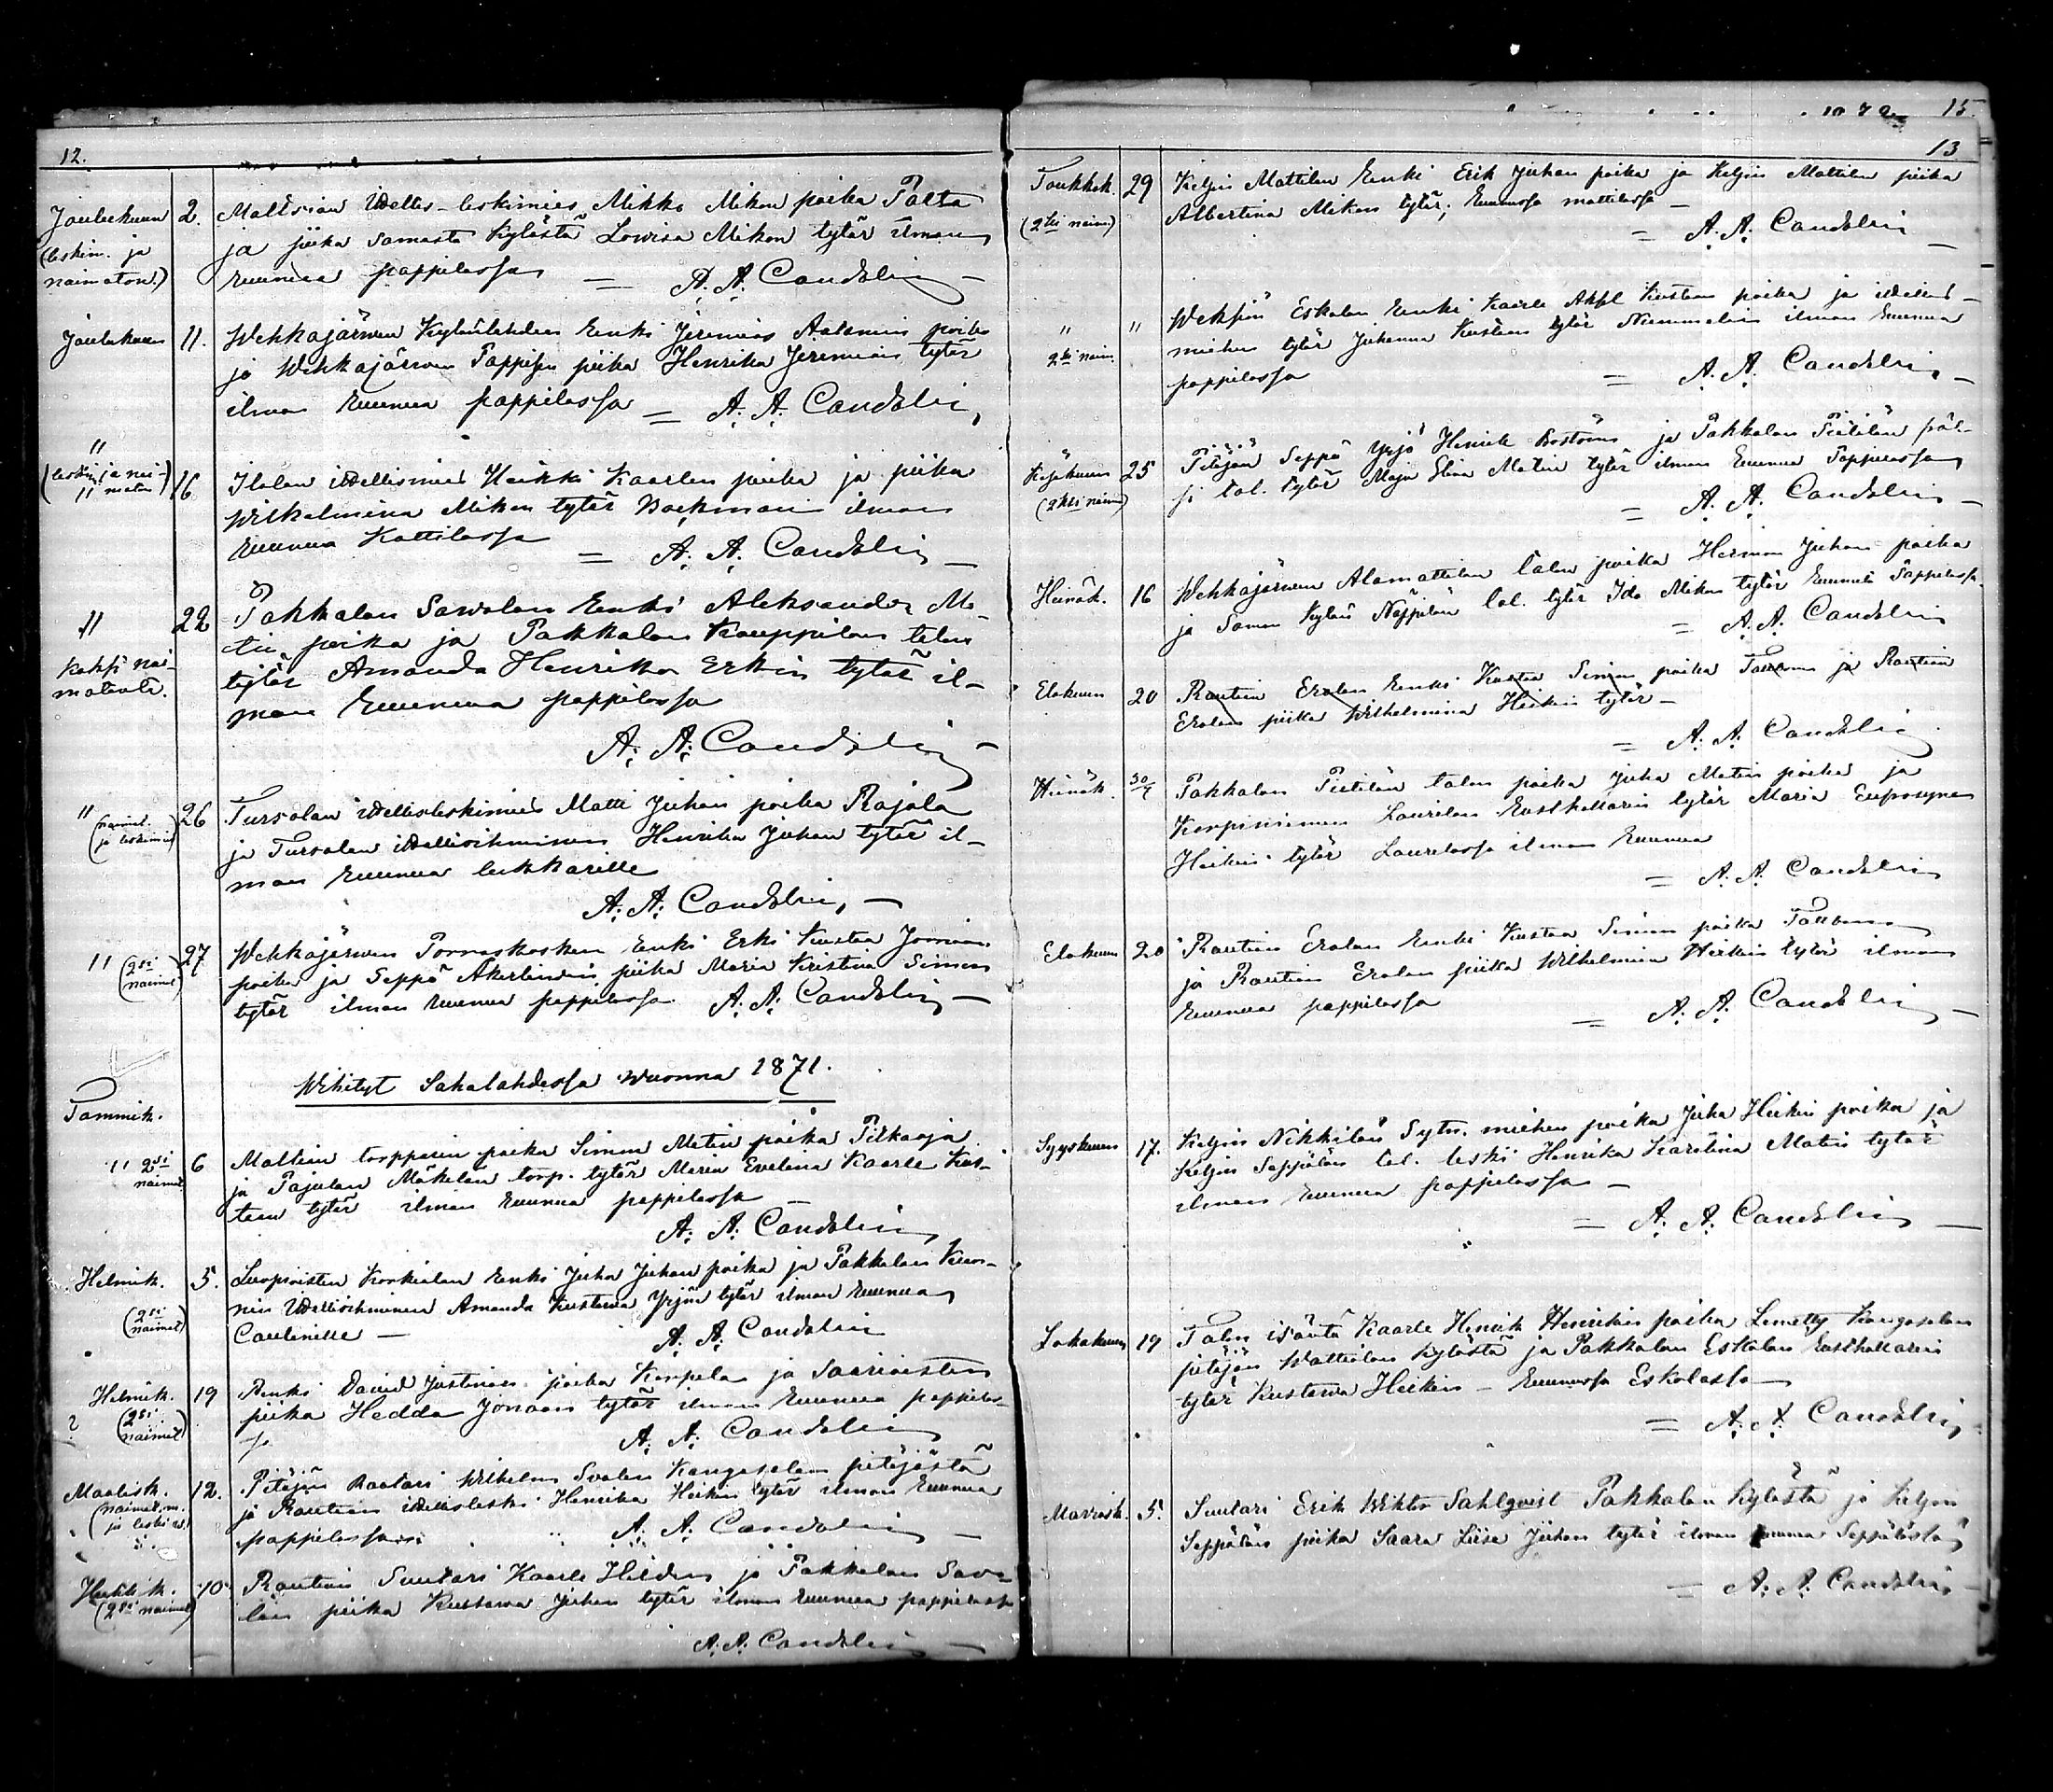 12.
Joulukuun 2. Maltvian Idellis-leskimies Mikko Mikon poika Palta
(leskim. ja ja piika samasta Kylästä Lowisa Mikon tytär ilman
naimaton.) ruunua pappilassa = A. A. Candolin
Joulukuun 11. Wehkajärwen Kylänlahden Renki Jeremias Aatamin poika
ja Wehkajärwen Pappisen piika Henrika Jeremias tytär
ilman ruunua pappilassa = A. A. Candolin,
"
(leskim. ja nai-
" maton) 16 Italan idellismies Heikki Kaarlen poika ja piika
Wilhelmina Mikon tytär Backman ilman
Ruunua Kattilassa = A. A. Candolin
" 22 Pakkalan Sawolan Renki Aleksander Ma-
tin poika ja Pakkalan Kauppilan talon
kaksi nai- tytär Amanda Henrika Erkin tytär il-
matonta. man Ruunua pappilassa
A. A. Candolin
" 26 Tursolan idellisleskimies Matti Juhan poika Rajala
(naimat. ja leskimies) ja Tursolan idellisihminen Henrika Juhan tytär il-
man Ruunua lukkarille
A. A. Candolin, —
" (2si naimat) 27 Wehkajärwen Porraskosken Renki Erki Kustaa Joonaan
poika ja Seppä Åkerlundin piika Maria Kristina Simon
tytär ilman ruunua pappilassa A. A. Candolin —
Wihityt Sahalahdessa wuonna 1871.
Tammik.
" 2si naimat 6 Maltian torpparin poika Simon Matin poika Pitkaaja
ja Pajulan Mäkelän torp. tytär Maria Evelina Kaarle Kus-
taan tytär ilman ruunua pappilassa —
A. A. Candolin
Helmik. 5. Luopioisten Korkialan Renki Juha Juhan poika ja Pakkalan Kuor-
(2si naimat) nin Idellisihminen Amanda Kustawa Yrjön tytär ilman ruunua
Cantinille — A. A. Candolin
Helmik. 19 Renki David Justinan poika Korpela ja Saarioisten
? (2si naimat) piika Hedda Jonaan tytär ilman Ruunua pappilas-
sa A. A. Candolin
Maalisk. 12. Pitäjän Raatari Wilhelm Svalin Kangasalan pitäjästä
(naimat. m. ja leski w.) ja Rautian idellisleski Henrika Heikin tytär ilman Ruunua
pappilassa A. A. Candolin —
Huhtik. 10. Rautian Suutari Kaarle Hilden ja Pakkalan Savo-
(2si naimat) lan piika Kustawa Juhan tytär ilman ruunua pappilassa
A. A. Candolin —
1872 15
13
Toukok. 29 Keljin Mattilan Renki Erik Juhan poika ja Keljin Mattilan piika
(2ksi naim) Albertina Mikon tytär; Ruunussa mattilassa —
= A. A. Candolin —
" " Wehjiön Eskolan Renki Kaarle Aksel Kustaan poika ja idellis-
2ksi naim. miehen tytär Johanna Kustaan tytär Nummelin ilman Ruunua
pappilassa = A. A. Candolin, —
Kesäkuun 25 Pitäjän Seppä Yrjö Henrik Boström ja Pakkalan Pietilän
(2ksi naim) tal. tytär Maja Stina Matin tytär ilman Ruunua Pappilassa
= A. A. Candolin —
Heinäk. 16 Wehkajärwen Alamattilan talon poika Herman Juhan poika
ja Saman Kylän Näppilän tal. tytär Ida Mikon tytär Ruunulla Pappilassa.
= A. A. Candolin
Elokuun 20 Rautian Erolan Renki Kustaa Simon poika ja Rautian
Erolan piika Wilhelmina Heikin tytär —
= A. A. Candolin
Heinäk. 30/7 Pakkalan Pietilän talon poika Juha Matin poika ja
Korpiniemen Laurilan Rusthollarin tytär Maria Euprosyne
Heikin tytär Laurilassa ilman Ruunua
= A. A. Candolin
Elokuun 20 Rautian Erolan Renki Kustaa Simon poika
ja Rautian Erolan piika Wilhelmina Heikin tytär ilman
Ruunua pappilassa = A. A. Candolin —
Syyskuun 17. Keljin Nikkilän Sytn. miehen poika Juha Heikin poika ja
Keljin Seppälän tal. leski Henrika Karolina Matin tytär
ilman Ruunua pappilassa —
= A. A. Candolin —
Lokakuun 19 Talon isäntä Kaarle Henrik Henrikin poika Limetty Kangasalan
pitäjän Wattialan kylästä ja Pakkalan Eskolan Rusthollarin
tytär Kustawa Heikin — Ruunussa Eskolassa —
= A. A. Candolin
Marrask. 5. Suutari Erik Wiktor Sahlqvist Pakkalan Kylästä ja Keljin
Seppälän piika Saara Liisa Juhan tytär ilman ruunua Seppälässä
= A. A. Candolin,